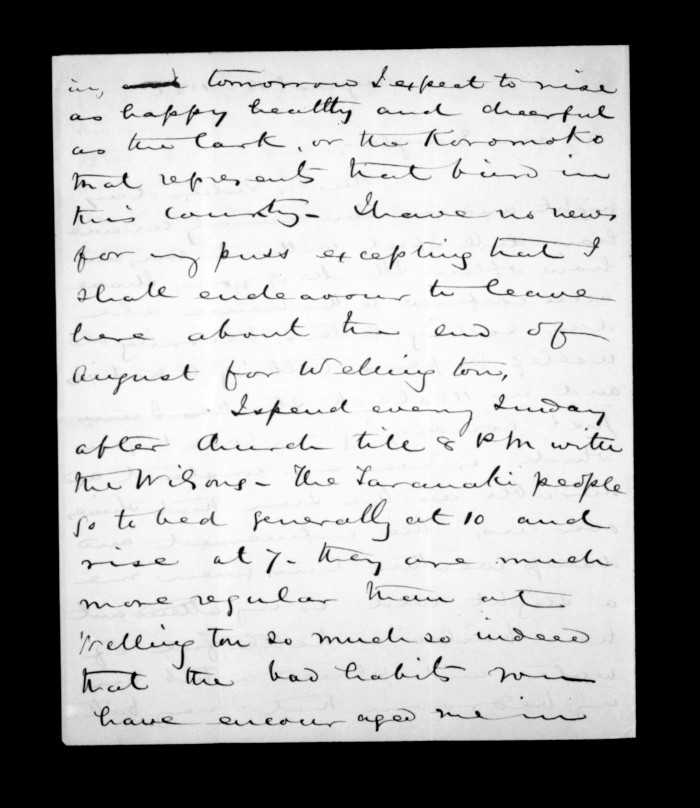 in, and tomorrow I expect to rise
as happy healthy and cheerful
as the lark, or the Koromoko
that represents that bird in
this country - I have no news
for my puss excepting that I
shall endeavour to leave
here about the end of
August for Wellington,
I spend every Sunday
after Church till 8 P M with
the Wilsons - The Taranaki people
go to bed generally at 10 and
rise at 7 - they are much
more regular than at
Wellington so much so indeed
that the bad habits you
have encouraged me in